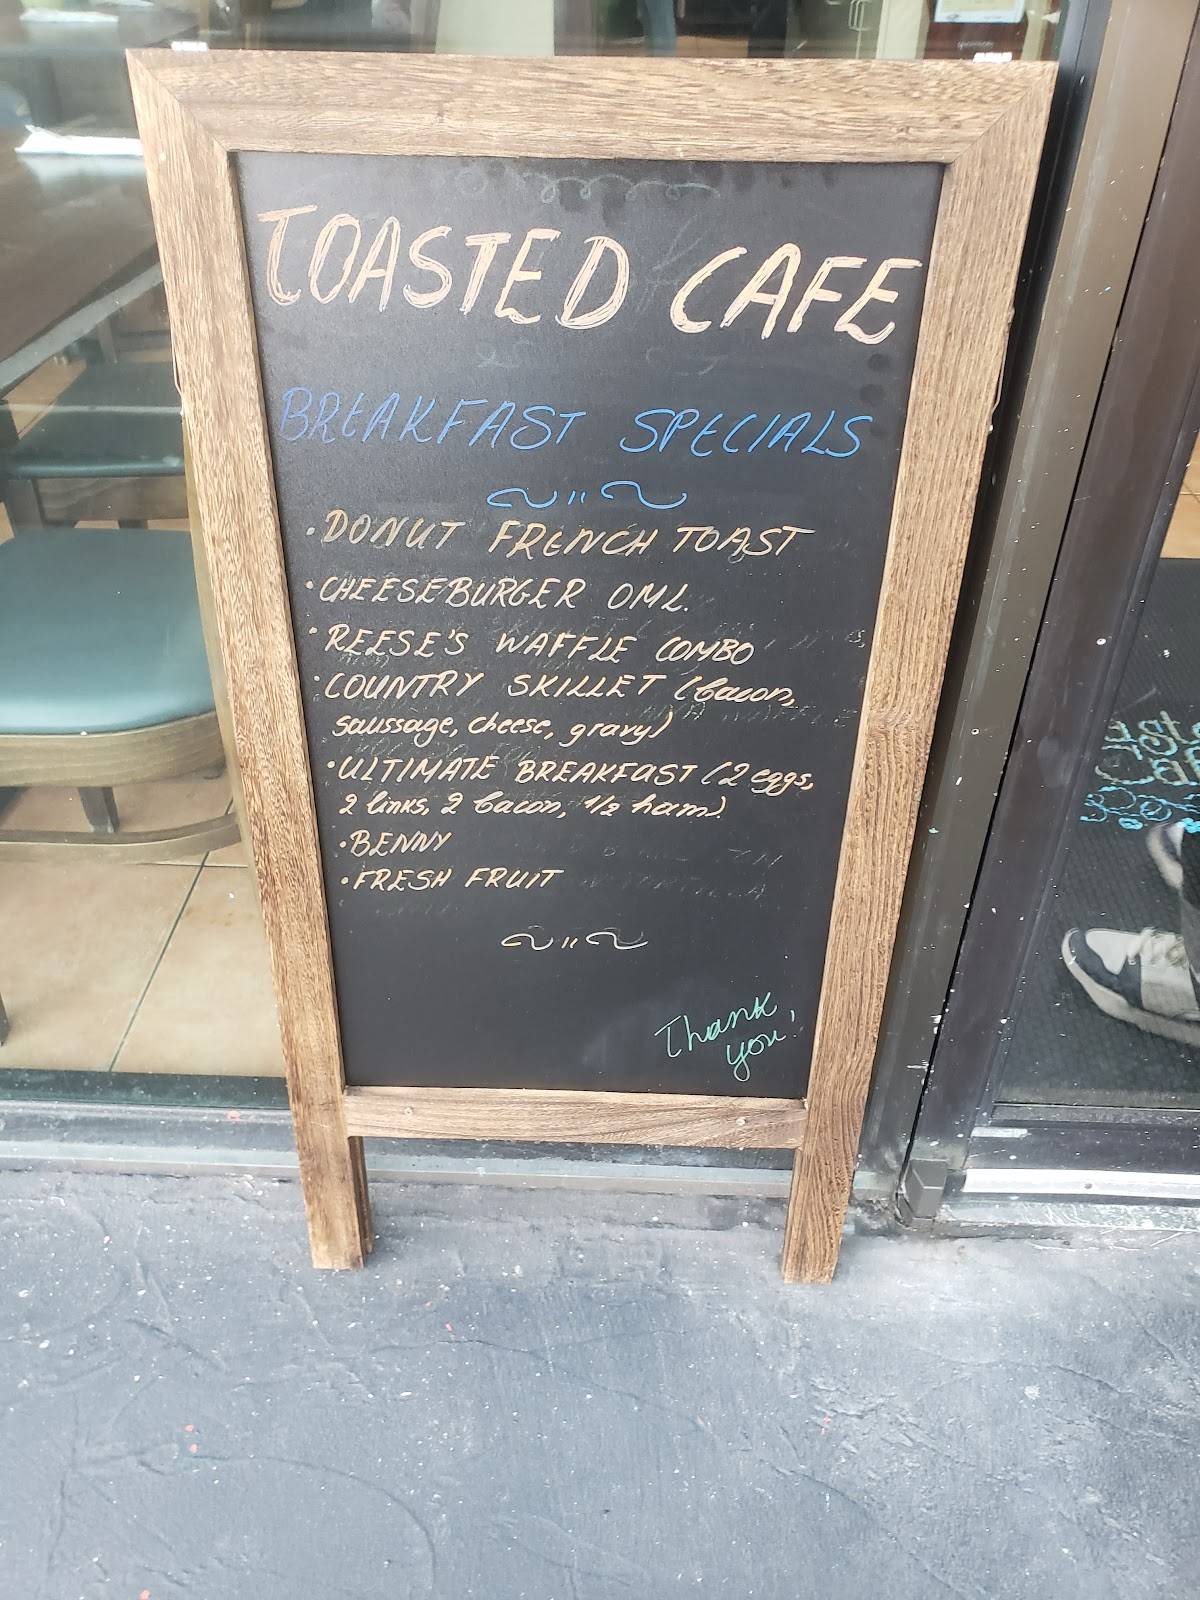 TOASTED CAFE
BREAKFAST SPECIALS
• DONUT FRENCH TOAST
• CHEESEBURGER OML.
• REESE'S WAFFLE COMBO
• COUNTRY SKILLET (bacon,
saussage, cheese, gravy)
• ULTIMATE BREAKFAST (2 eggs,
2 links, 2 bacon, 1/2 ham)
• BENNY
• FRESH FRUIT
Thank
you!